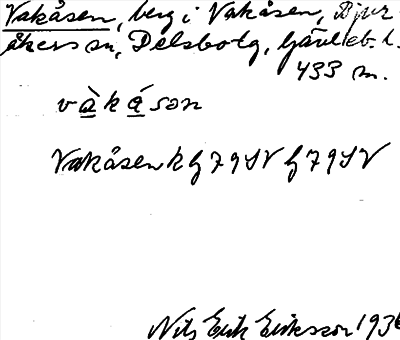 Vakåsen, berg i Vakåsen, Bjur-
åkers sn, Delsbo tg, Gävleb. l.
433 m.
và̲ká̲sən
Vakåsen
Nils Erik Eriksson 193